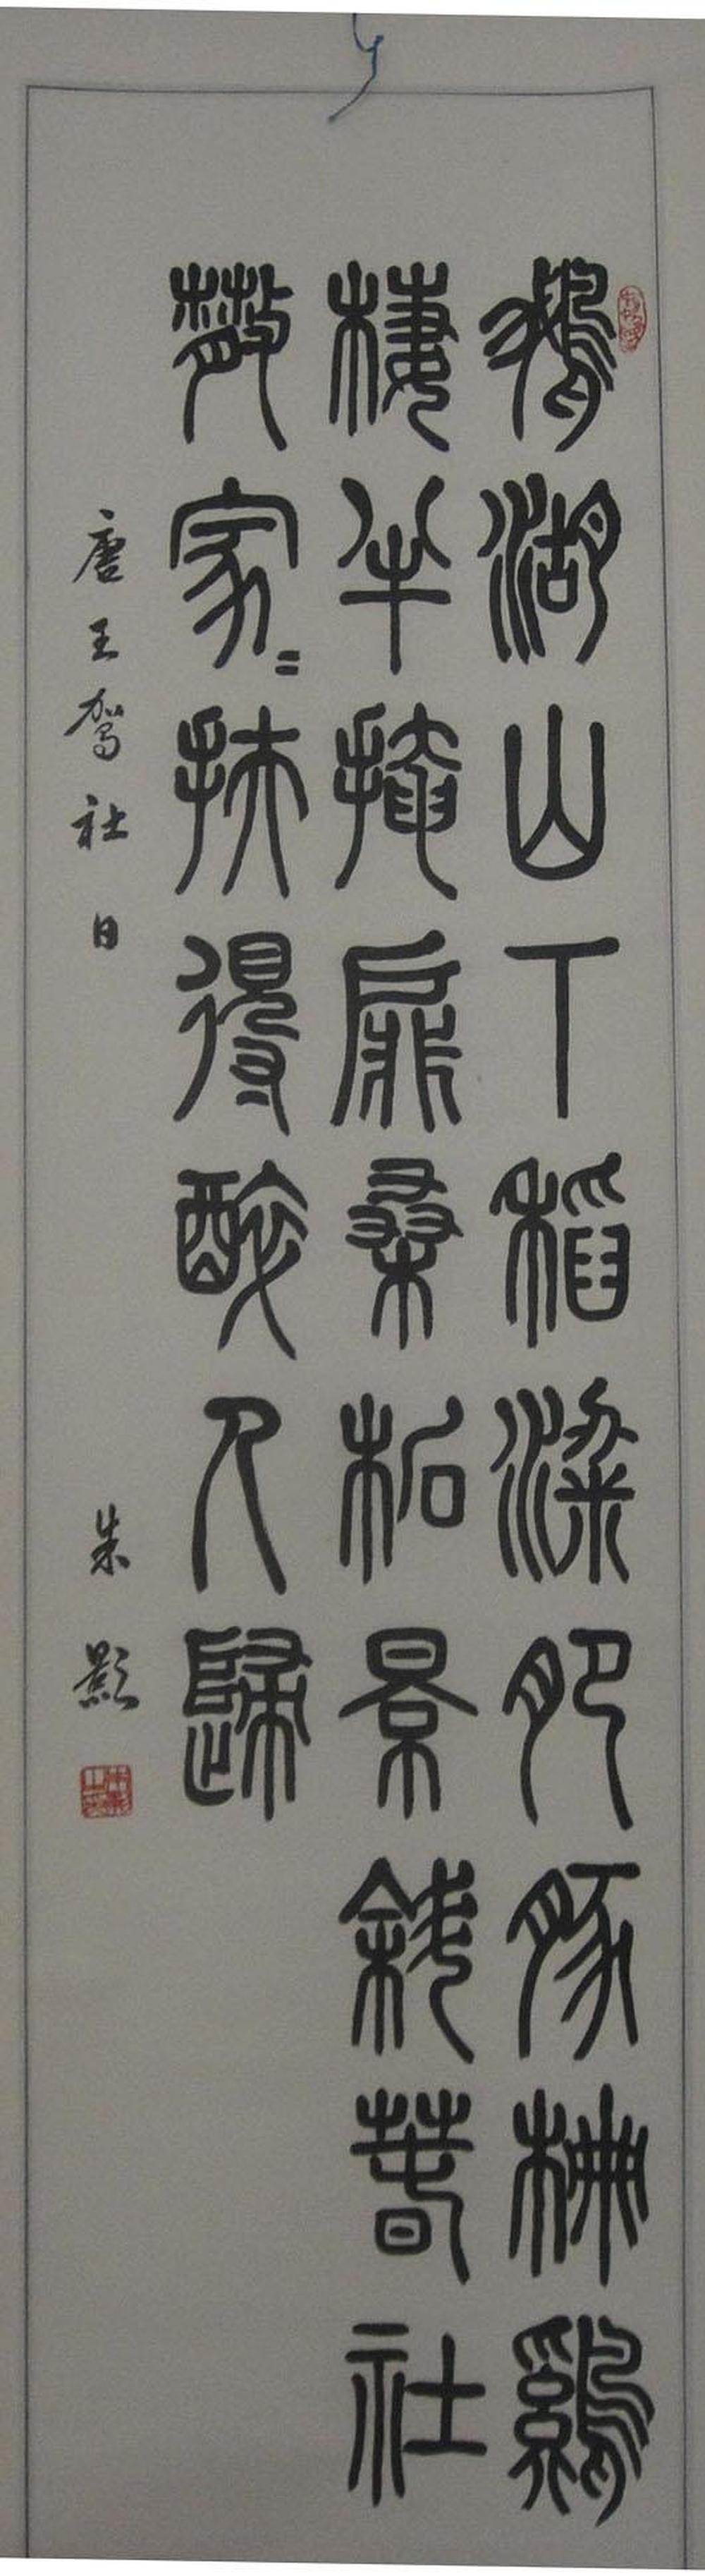 鵝湖山下稻粱肥豚柵鷄
棲半掩扉桑柘景斜春社
散家〻扶得醉人歸
唐王驾社日
朱影